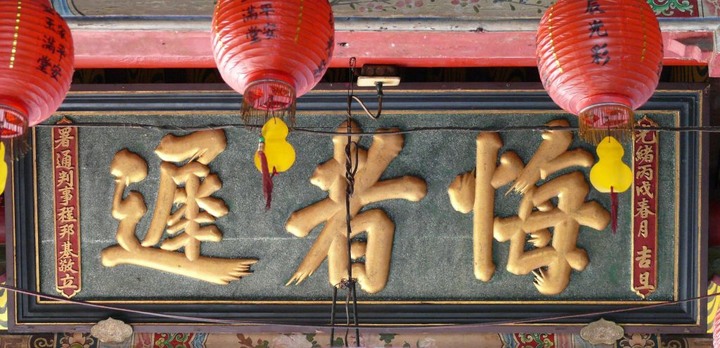 光緒丙戌春月吉旦
悔者遲
署通判事程邦基敬立
光彩
平安
滿堂
平安
滿堂